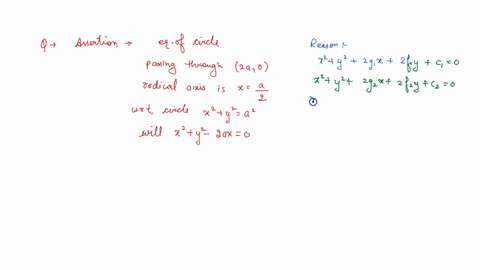 Q → Assertion → eq. of circle
passing through (2a, 0)
radical axis is x = a/2
wrt circle x² + y² = a²
will x² + y² - 2ax = 0
Reason :-
x² + y² + 2g₁x + 2f₁y + c₁ = 0
x² + y² + 2g₂x + 2f₂y + c₂ = 0